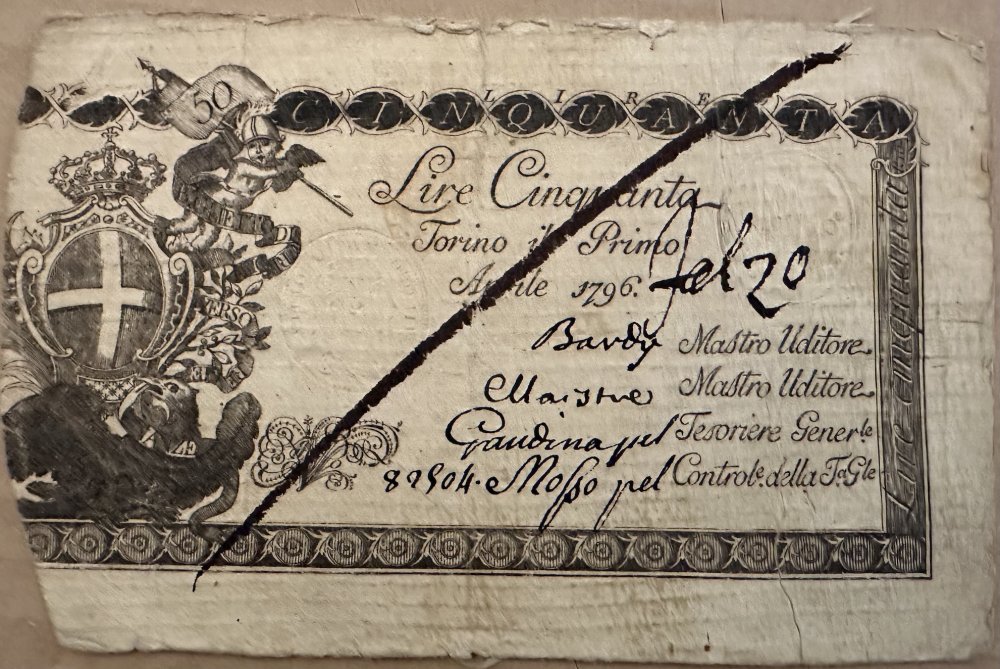 50
LIRE
CINQUANTA
Lire Cinquanta
Torino il Primo
Aprile 1796.
20
Mastro Uditore
Maistre Mastro Uditore
Gaudina pel Tesoriere Gener.le
82504. Mosso pel Control.e della T.a G.le
Lire cinquanta